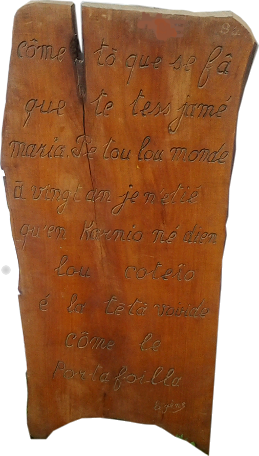 côme tô que se fâ
que te tess jamé
maria. De tou lou monde
à vingt an je metié
qu'en Kaenia né dien
lou coteïo
é la têtâ voude
côme le
Porta foilla